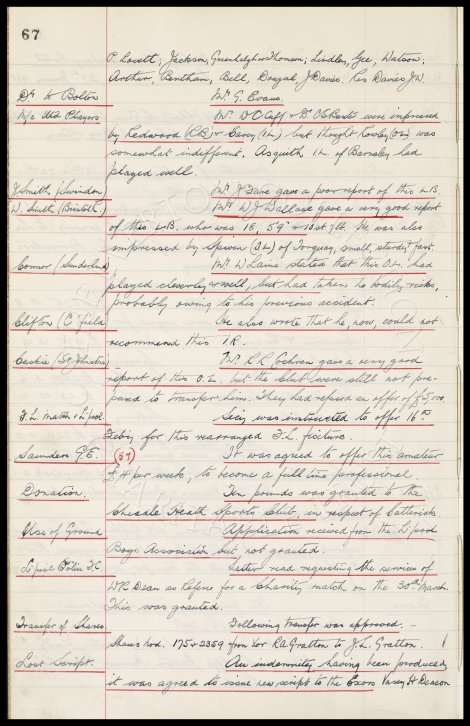 67
P. Lovett, Jackson, Greenhalgh & Thomson, Lindley, Gee, Watson,
Arthur, Bentham, Bell, Dougal, J Davies. Res Davies J.W.
Dn. to Bolton Mr. G. Evans.
M/c Utd Players Mr. W C Cuff & Dr. were impressed
by Redwood (R.B.) & Carey (I.L.) but thought (O.L.) was
somewhat indifferent. Asquith I.L. of Barnsley had
played well.
J Smith (Swindon) Mr. gave a poor report of this L.B.
W. Smith (Bristol R.) Mr. W J Wallace gave a very good report
of this L.B. who was 18, 5'9" & 10 st 7 lb. He was also
impressed by (O.L.) of Torquay, small, sturdy, fair.
Connor (Sunderland) Mr. W Laine stated that this O.L. had
played cleverly & well, but had taken no bodily risks,
probably owing to his previous accident.
Clifton (C'field He also wrote that he now, could not
recommend this I.R.
Caskie (St Johnstne) Mr. R R Cochran gave a very good
report of this O.L. but the Club were still not pre-
pared to transfer him. They had refused an offer of £5,000.
F.L. Match v L'pool Secy. was instructed to offer 16th
Feb'y for this rearranged F.L. fixture.
Saunders G.E. (59) It was agreed to offer this amateur
£4 per week, to become a full time professional.
Donation. Ten pounds was granted to the
Heath Sports Club, in respect of Catterick.
Use of Ground Application received from the L'pool
Boys Association but not granted.
L'pool Police F.C. Letter read requesting the services of
W R Dean as Referee for a Charity match on the 30th March.
This was granted.
Transfer of Shares Following transfer was approved: -
Shares Nos. 175 & 2359 from R A Gratton to J. L. Gratton.
Lost Script. An indemnity having been produced,
it was agreed to issue new script to the Exors Vasey H Deacon